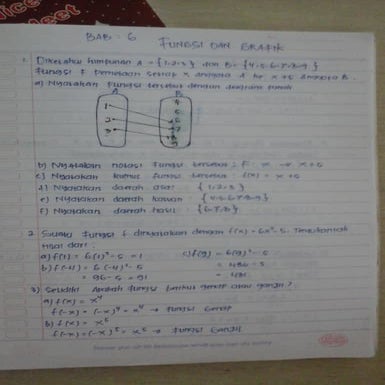 BAB : 6 FUNGSI DAN GRAFIK
1. Diketahui himpunan A = {1,2,3} dan B = {4,5,6,7,8,9}
fungsi f pemetaan setiap x anggota A ke x+5 anggota B.
a) Nyatakan fungsi tersebut dengan diagram panah
A B
1 2 3
4 5 6 7 8 9
b) Nyatakan notasi fungsi tersebut : F : x → x+5
c) Nyatakan rumus fungsi tersebut : f(x) = x+5
d) Nyatakan daerah asal : {1,2,3}
e) Nyatakan daerah kawan : {4,5,6,7,8,9}
f) Nyatakan daerah hasil : {6,7,8}
2. Suatu fungsi f dinyatakan dengan f(x) = 6x²-5. Tentukanlah
nilai dari :
a) f(1) = 6(1)²-5 = 1 c) f(9) = 6(9)²-5
b) f(-4) = 6(-4)²-5 = 486 - 5
= 96-5 = 91 = 481.
3) Selidiki Apakah fungsi berikut genap atau ganjil?
a) f(x) = x⁴
f(-x) = (-x)⁴ = x⁴ → fungsi Genap
b) f(x) = x⁵
f(-x) = (-x)⁵ = x⁵ → fungsi Ganjil